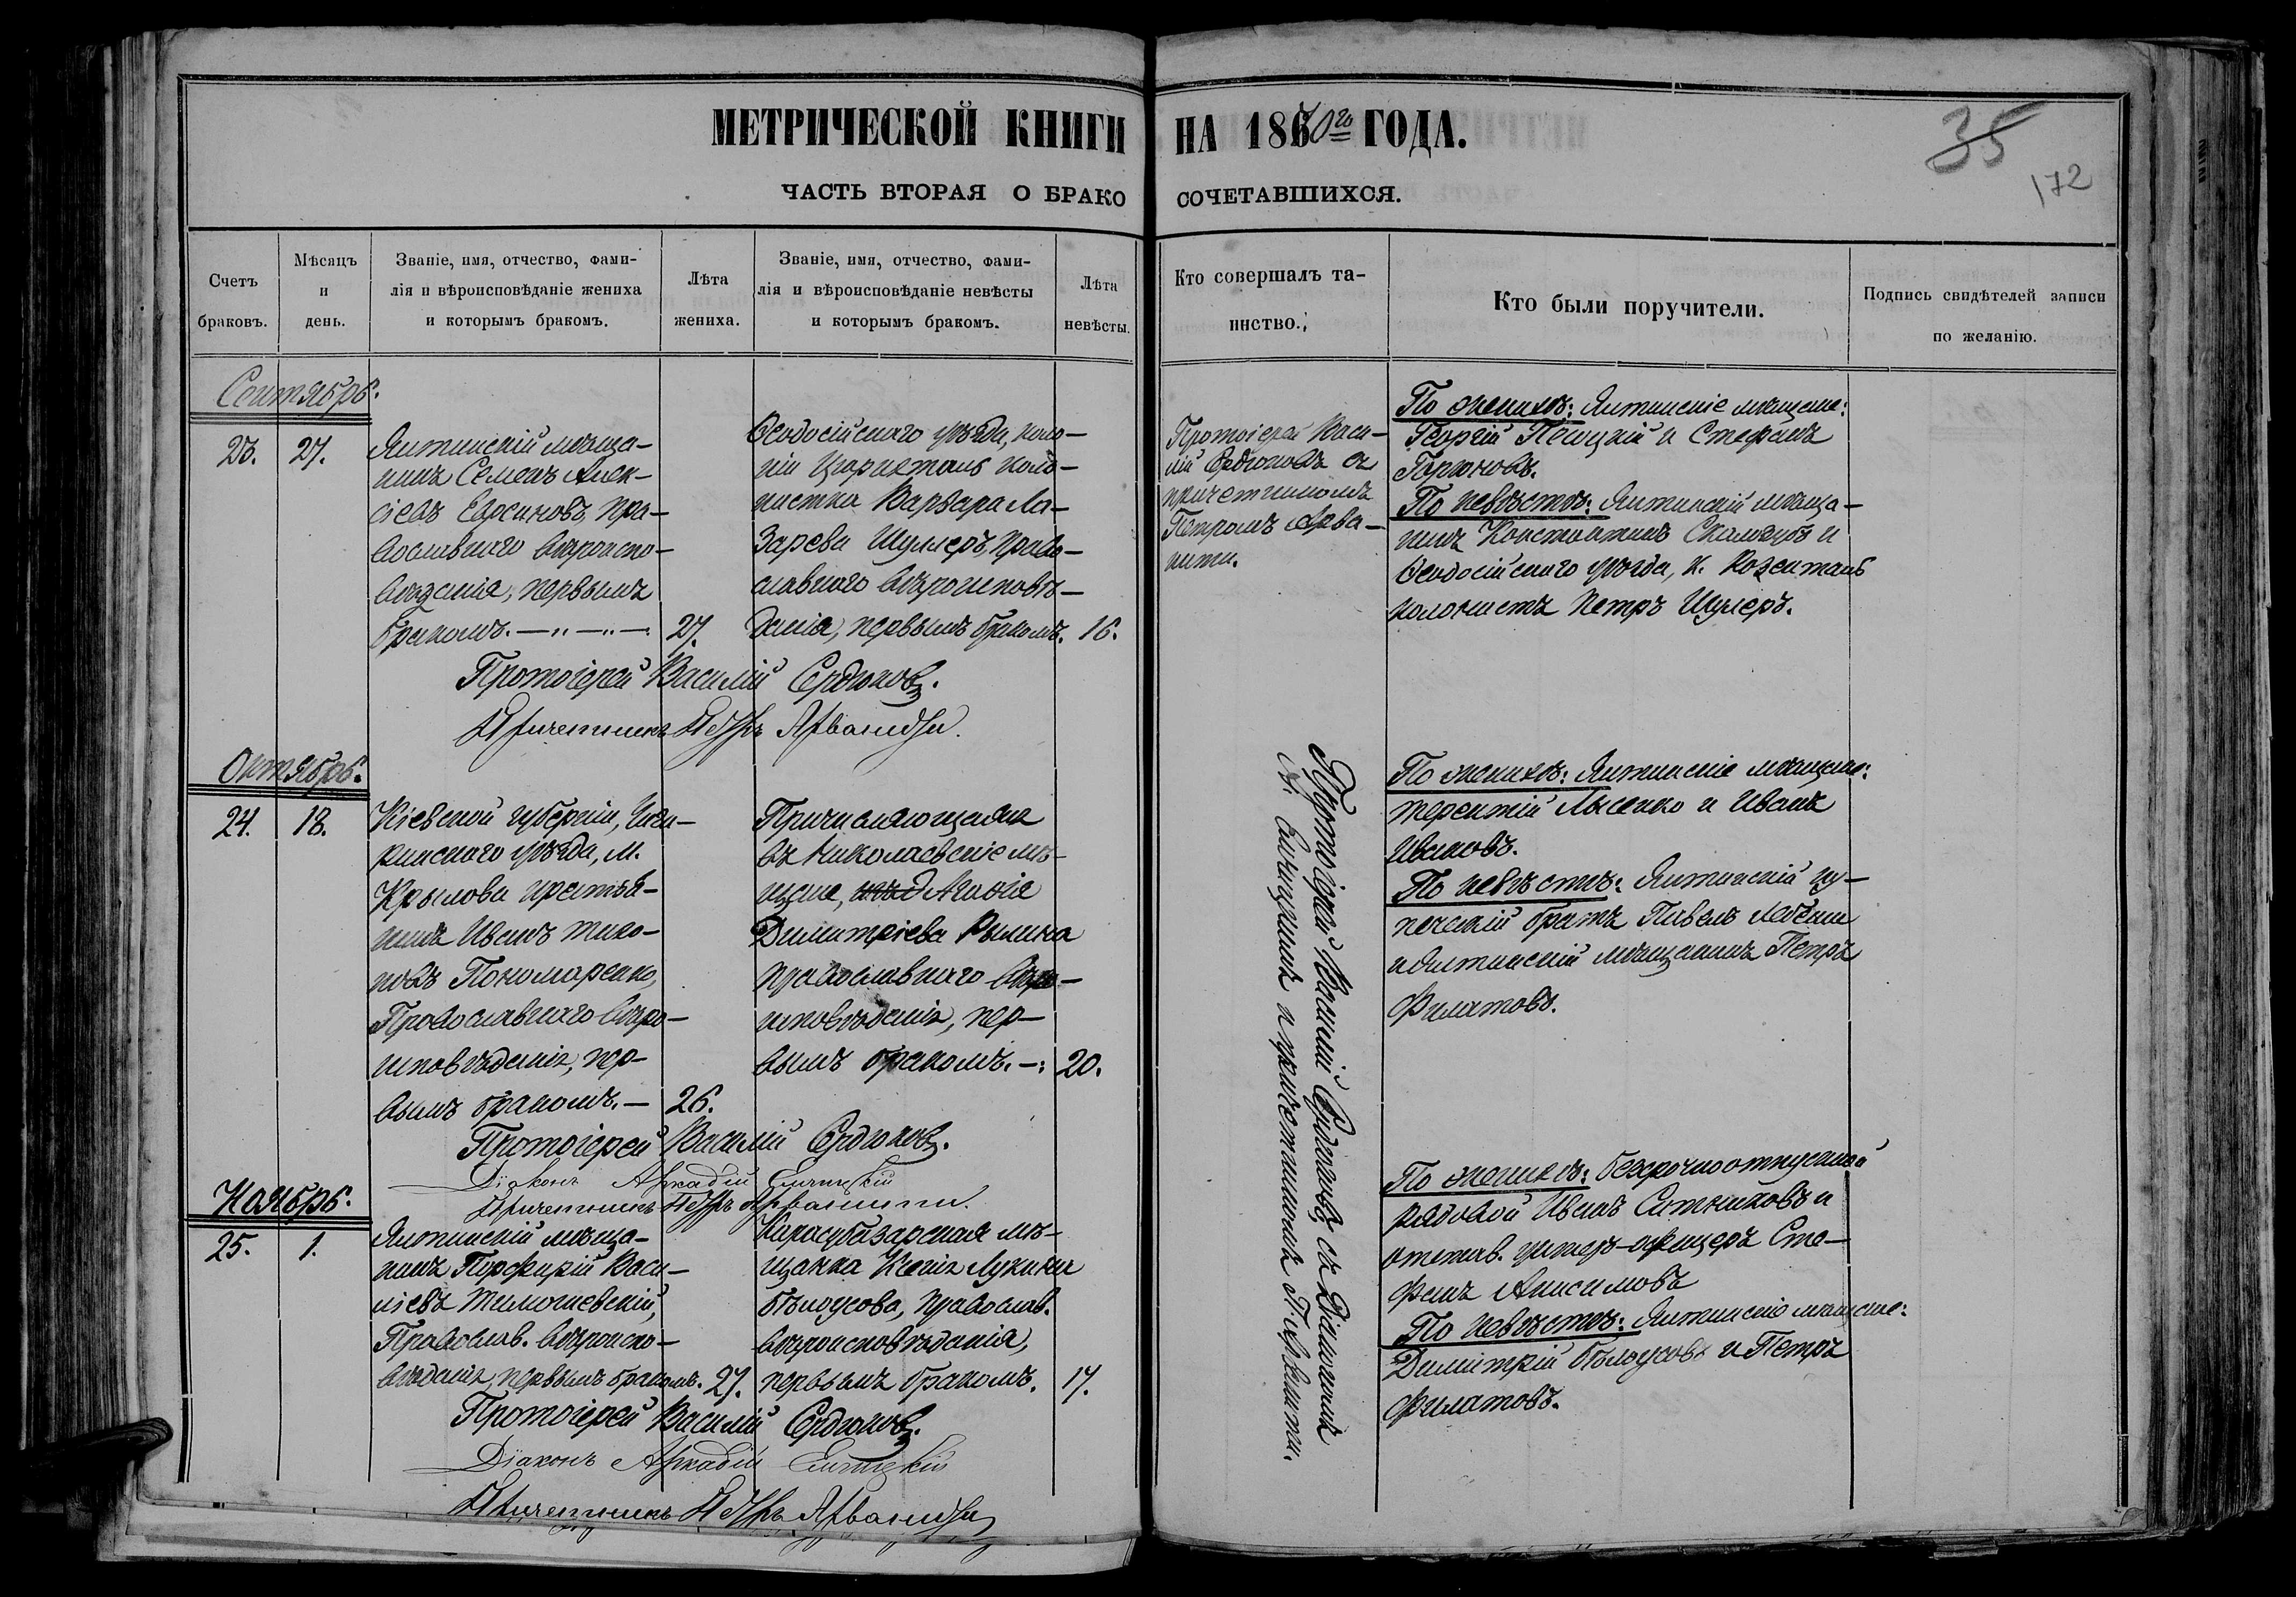 МЕТРИЧЕСКОЙ КНИГИ НА 1870го ГОДА.
35
172
ЧАСТЬ ВТОРАЯ О БРАКОСОЧЕТАВШИХСЯ.
Счетъ
браковъ.
Мѣсяцъ
и
день.
Званіе, имя, отчество, фами-
лія и вѣроисповѣданіе жениха
и которымъ бракомъ.
Лѣта
жениха.
Званіе, имя, отчество, фами-
лія и вѣроисповѣданіе невѣсты
и которымъ бракомъ.
Лѣта
невѣсты.
Кто совершалъ та-
инство.
Кто были поручители.
Подпись свидѣтелей записи
по желанію.
Сентябрь.
23.
27.
Ялтинскій мѣща-
нинъ Семенъ Алек-
сіевъ Евсиковъ, пра-
вославнаго вѣроиспо-
вѣданія, первымъ
бракомъ.
27.
Ѳеодосійскаго уѣзда, коло-
ніи Цюрихталь коло-
нистка Варвара Ла-
зарева Шуллеръ, право-
славнаго вѣроисповѣ-
данія, первымъ бракомъ.
16.
Протоіерей Васи-
лій Сердюковъ съ
причетникомъ
Петромъ Арва-
нити.
По женихѣ: Ялтинскіе мѣщане:
Георгій и Стефанъ
Горюновъ.
По невѣстѣ: Ялтинскій мѣща-
нинъ Константинъ и
Ѳеодосійскаго уѣзда, к. Розенталь
колонистъ Петръ Шулеръ.
Протоіерей Василій Сердюковъ.
Причетникъ Петръ Арваниди.
Октябрь.
24.
18.
Кіевской губерніи, Чиги-
ринскаго уѣзда, м.
Крылова крестья-
нинъ Иванъ Тихо-
новъ Пономаренко,
Православнаго вѣро-
исповѣданія, пер-
вымъ бракомъ.
26.
Причисляющаяся
въ Николаевскіе мѣ-
щане, Агавія
Димитріева Рылина
православнаго вѣро-
исповѣданія, пер-
вымъ бракомъ.
20.
Протоіерей Василій Сердюковъ съ Діакономъ
А. Синицкимъ и причетникомъ П. Арванити.
По женихѣ: Ялтинскіе мѣщане:
Терентій Лысенко и Иванъ
Ивановъ.
По невѣстѣ: Ялтинскій ку-
печескій братъ Павелъ
и Ялтинскій мѣщанинъ Петръ
Филатовъ.
Протоіерей Василій Сердюковъ.
Діаконъ Аркадій Синицкій
Причетникъ Петръ Арванити.
Ноябрь.
25.
1.
Ялтинскій мѣща-
нинъ Порфирій Васи-
ліевъ Тимошевскій,
Православ. вѣроиспо-
вѣданія, первымъ бракомъ.
27.
Карасубазарская мѣ-
щанка Ксенія Лукина
Бѣлоусова, православ.
вѣроисповѣданія,
первымъ бракомъ.
17.
По женихѣ: безсрочноотпускной
рядовой Иванъ Ситниковъ и
отстав. унтеръ-офицеръ Сте-
фанъ Анисимовъ
По невѣстѣ: Ялтинскіе мѣщане:
Димитрій Бѣлоусовъ и Петръ
Филатовъ.
Протоіерей Василій Сердюковъ.
Діаконъ Аркадій Синицкій
Причетникъ Петръ Арваниди